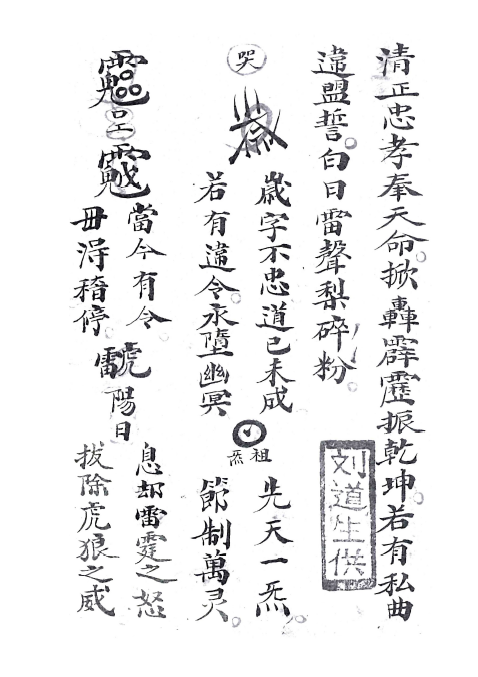 清正忠孝奉天命掀轟霹靂振乾坤若有私曲
違盟誓白日雷聲梨碎粉
刘道生供
哭
歳字不忠道已未成
若有違令永墮幽冥
祖炁
先天一炁
節制萬灵
當今有令
毋淂稽停
陽日
息却雷霆之怒
拔除虎狼之威